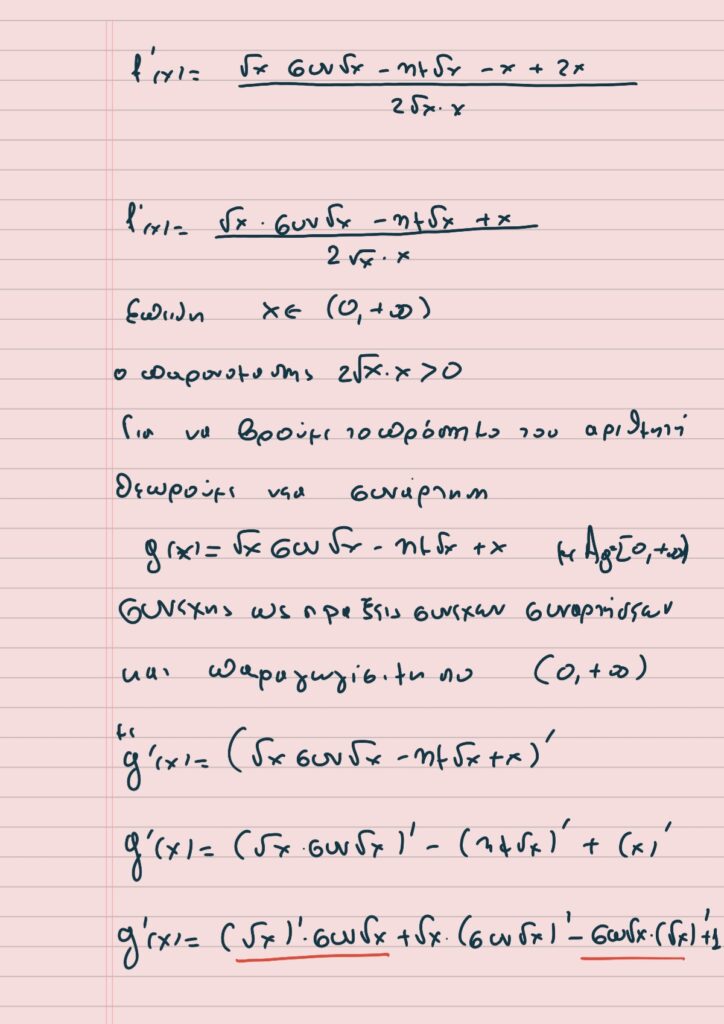 f'(x)= √x συν√x - ημ√x - x + 2x / 2√x·x
f'(x)= √x · συν√x - ημ√x + x / 2√x · x
Επειδή x∈ (0,+∞)
ο παρονομαστης 2√x·x>0
Για να βρούμε το πρόσημο του αριθμητή
Θεωρούμε νέα συνάρτηση
g(x)= √x συν√x - ημ√x + x με Ag=[0,+∞)
συνεχης ως πραξεις συνεχων συναρτήσεων
και παραγωγίσιμη στο (0,+∞)
με
g'(x)= (√x συν√x - ημ√x + x)'
g'(x)= (√x·συν√x)' - (ημ√x)' + (x)'
g'(x)= (√x)'·συν√x + √x·(συν√x)' - συν√x·(√x)'+1